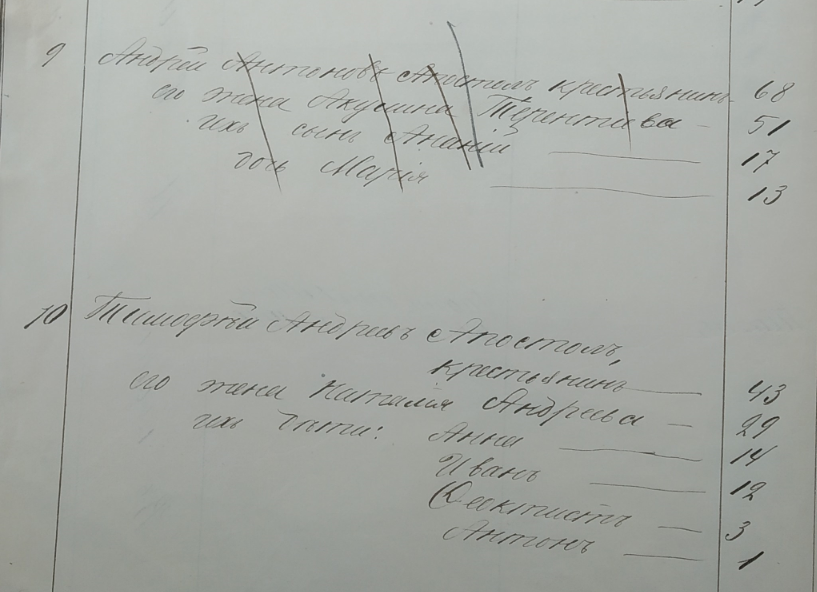 9 Андрей Антоновъ Апостолъ крестьянинъ 68
его жена Акулина Терентьева 51
ихъ сынъ Ананій 17
дочь Марія 13
10 Тимофтій Андреевъ Апостолъ,
крестьянинъ 43
его жена Наталія Андреева 29
ихъ дѣти: Анна 14
Иванъ 12
Феоктистъ 3
Антонъ 1